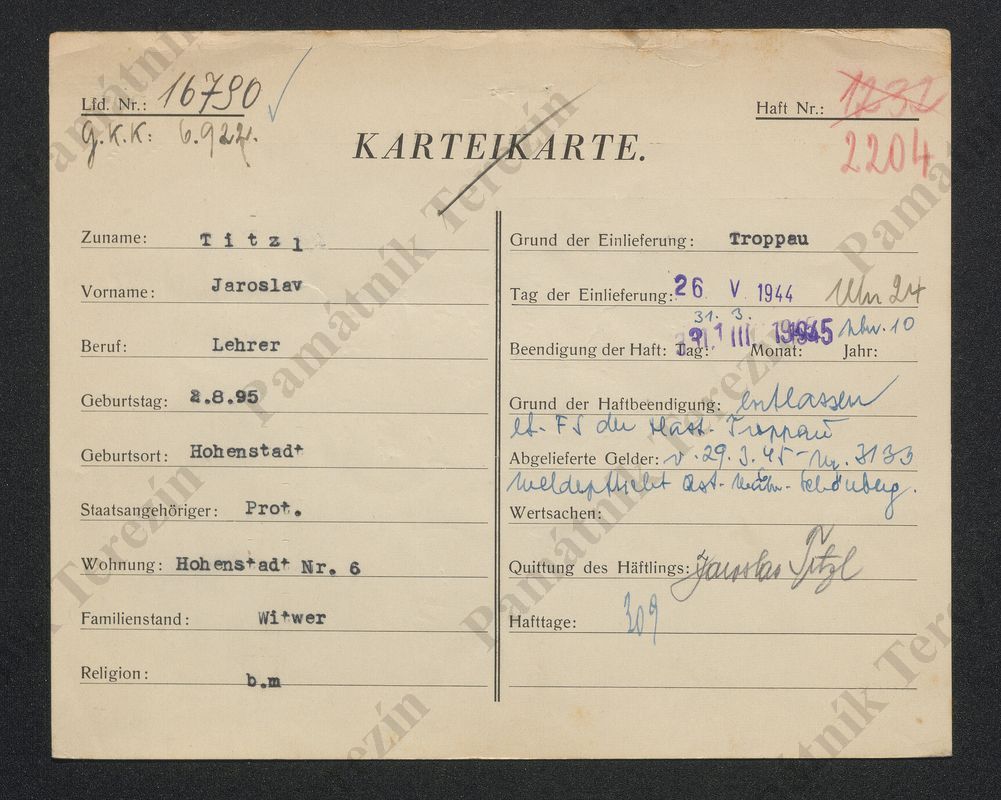 Lfd. Nr.: 16790
G.K.K: 6.922.
Haft Nr.: 1232
2204
KARTEIKARTE.
Zuname: Titzl
Vorname: Jaroslav
Beruf: Lehrer
Geburtstag: 2.8.95
Geburtsort: Hohenstadt
Staatsangehöriger: Prot.
Wohnung: Hohenstadt Nr. 6
Familienstand: Witwer
Religion: b.m
Grund der Einlieferung: Troppau
Tag der Einlieferung: 26 V 1944 Uhr 24
31. 3. Uhr. 10
Beendigung der Haft: Tag: 31 III Monat: 1945 Jahr:
Grund der Haftbeendigung: entlassen
lt. FS der Stast. Troppau
Abgelieferte Gelder: v. 29.3.45 - Nr. 3133
Meldepflicht Ast. Mähr. Schönberg.
Wertsachen:
Quittung des Häftlings: Jaroslav Titzl
Hafttage: 309
Památník Terezín